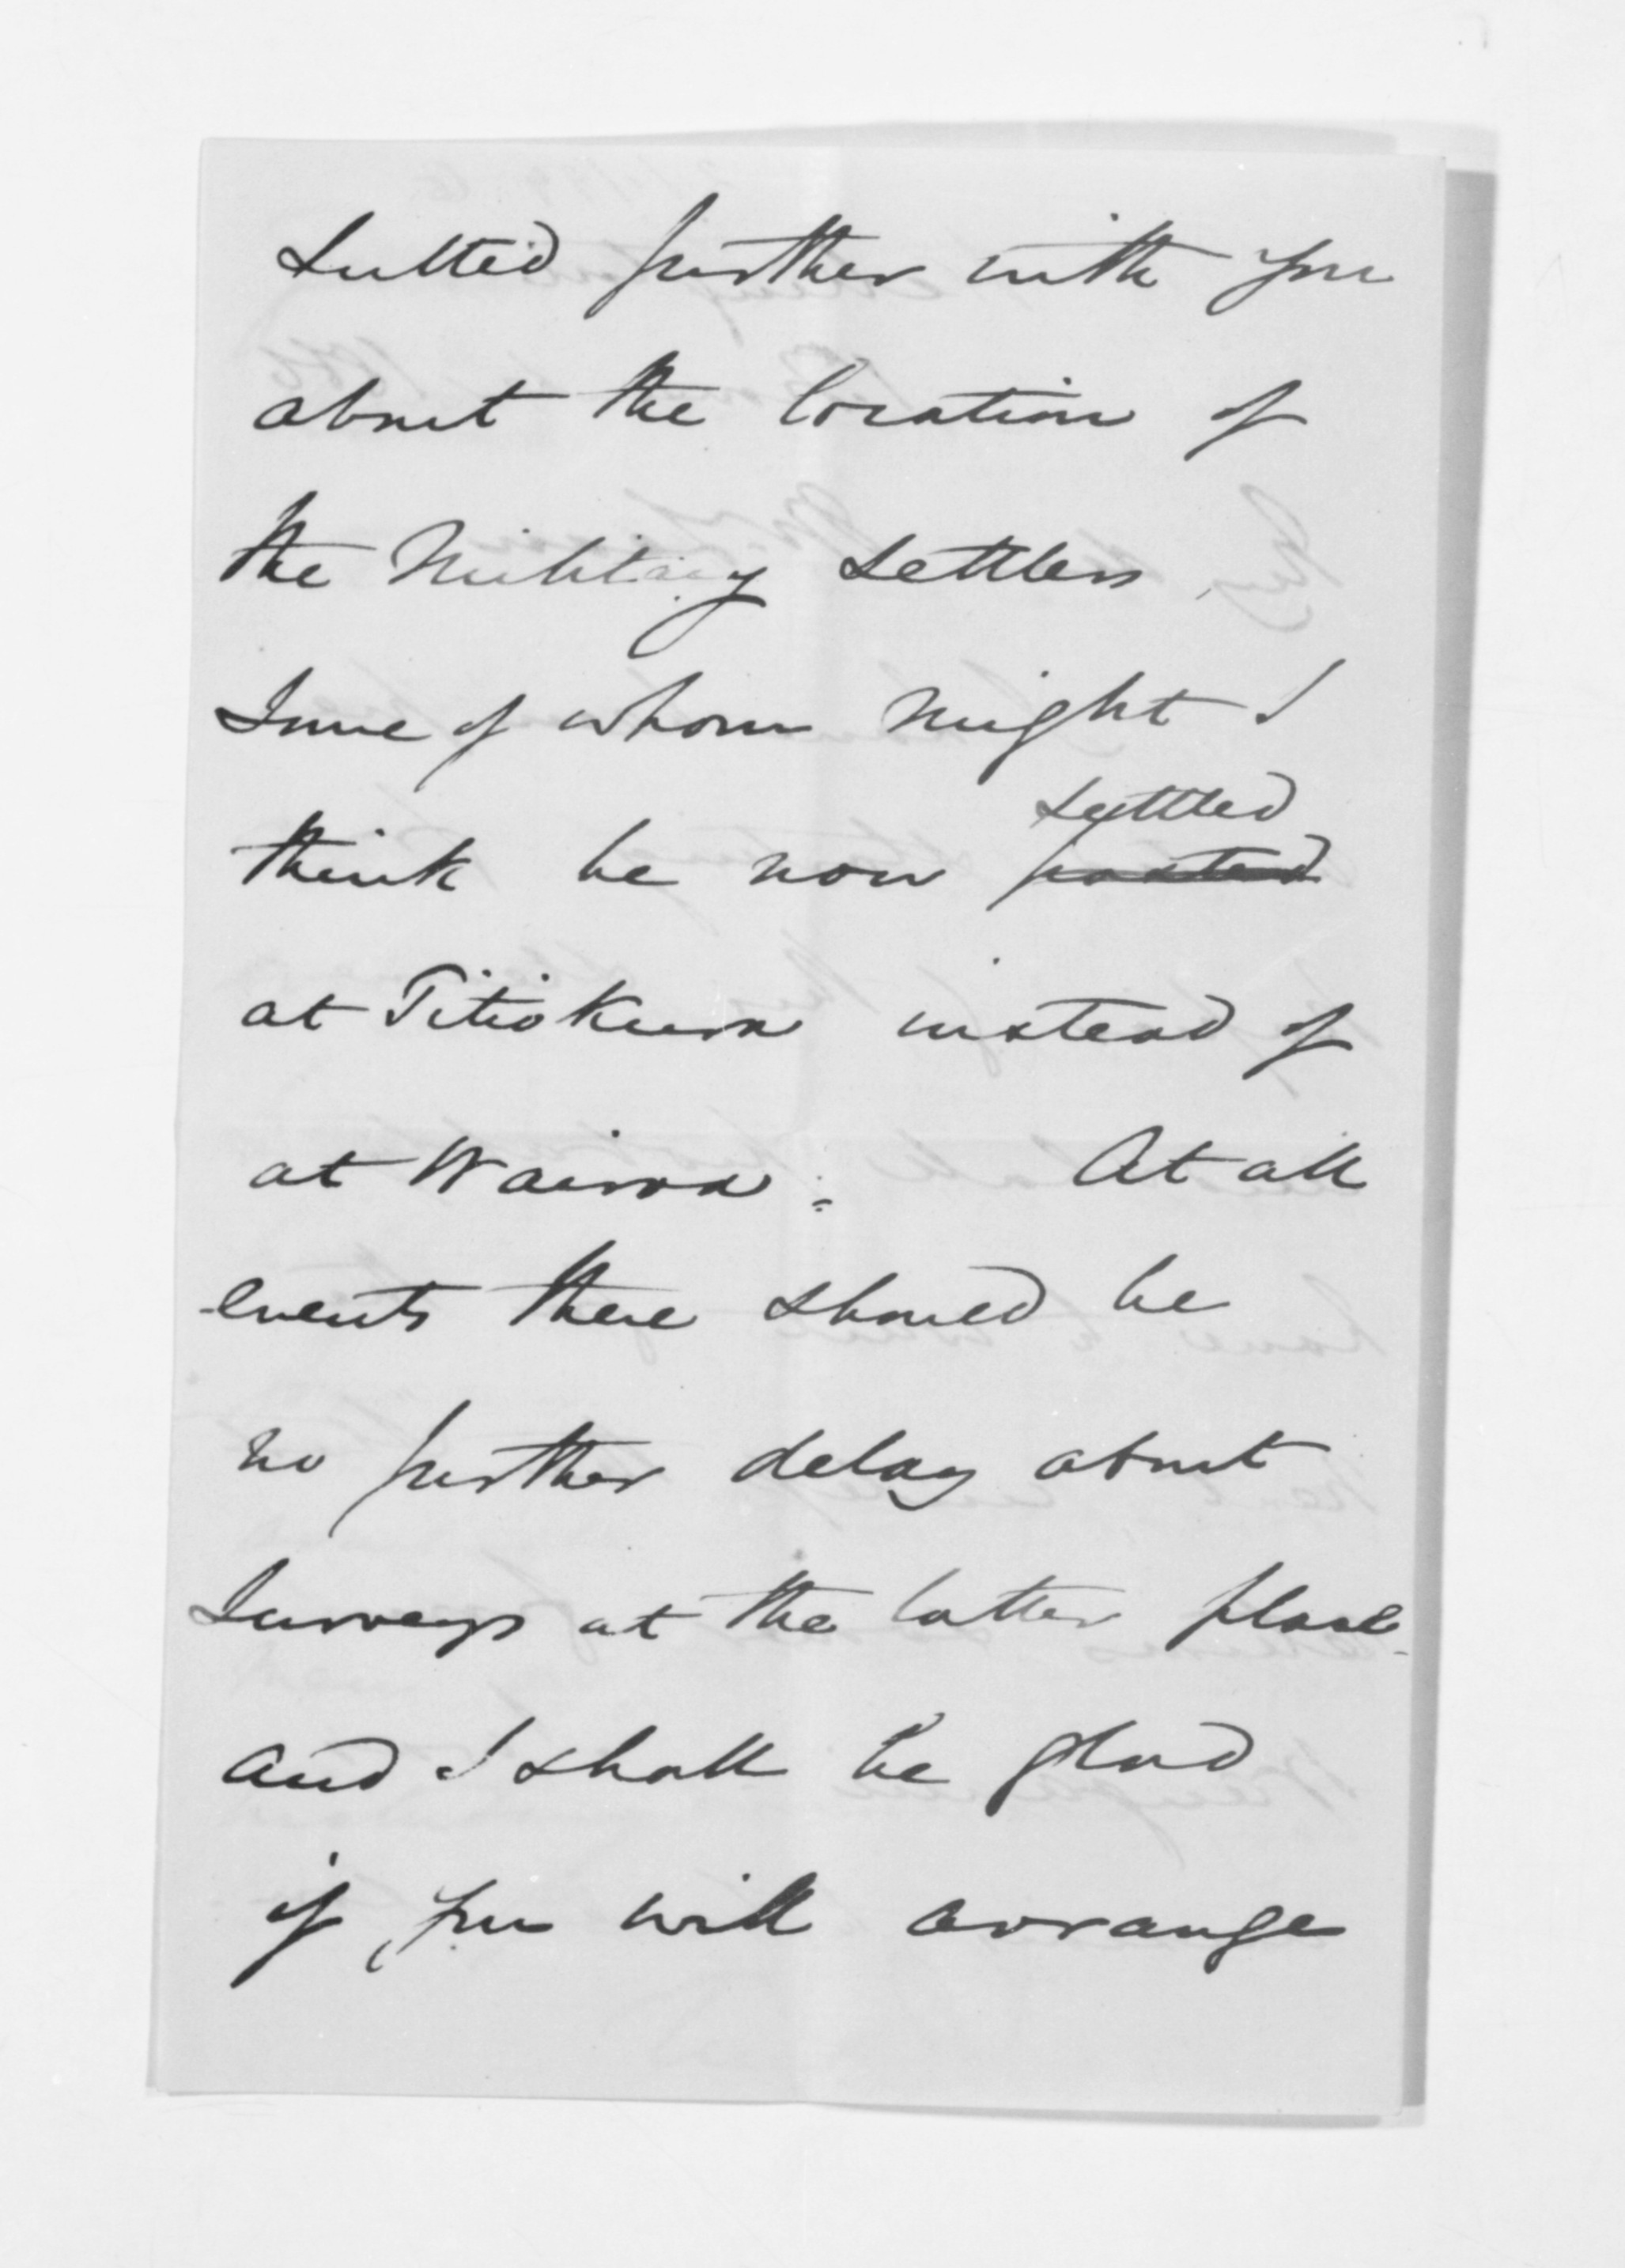 sulted further with you
about the location of
the Military settlers,
some of whom might I
settled
think be now posted
at Titiokura instead of
at Wairoa. At all
events there should be
no further delay about
surveys at the latter place
and I shall be glad
if you will arrange